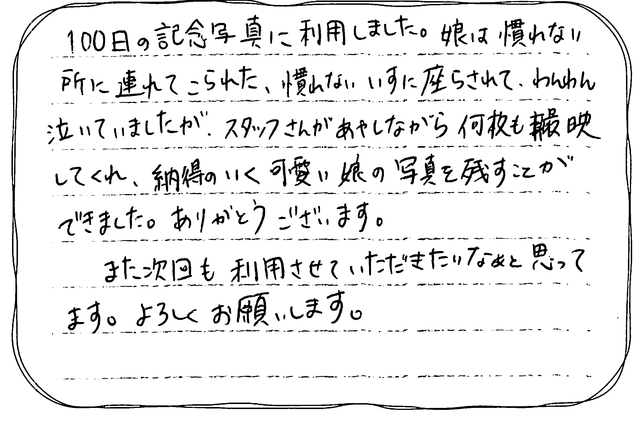 100日の記念写真に利用しました。娘は慣れない
所に連れてこられた、慣れないいすに座らされて、わんわん
泣いていましたが、スタッフさんがあやしながら何枚も撮映
してくれ、納得のいく可愛い娘の写真を残すことが
できました。ありがとうございます。
また次回も利用させていただきたいなぁと思って
ます。よろしくお願いします。